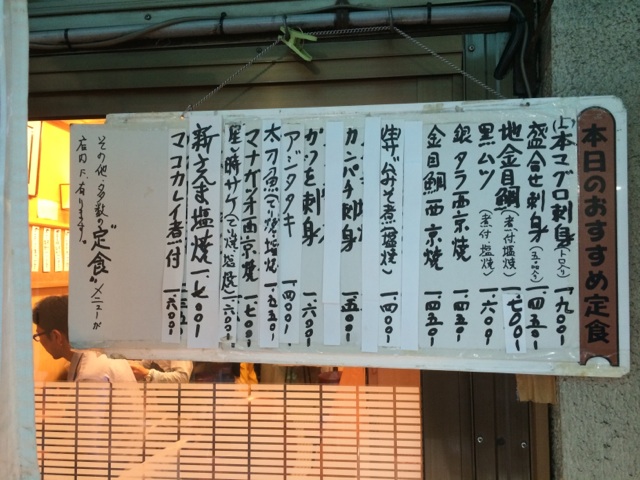 本日のおすすめ定食
(上)本マグロ刺身(トロ入り) 一、九〇〇
盛合せ刺身 一、四五〇
地金目鯛(煮付 塩焼) 一、七〇〇
黒ムツ(煮付 塩焼) 一、六〇〇
銀タラ西京焼 一、四五〇
金目鯛西京焼 一、四五〇
サバみそ煮(塩焼) 一、四〇〇
カンパチ刺身 一、五〇〇
カツオ刺身 一、六〇〇
アジタタキ 一、四〇〇
太刀魚 塩焼 一、五五〇
マナガツオ西京焼 一、七〇〇
時サケ 塩焼) 一、六〇〇
新さんま塩焼 一、七〇〇
マコカレイ煮付 一、六〇〇
その他、多数の"定食"メニューが
店内に有ります。